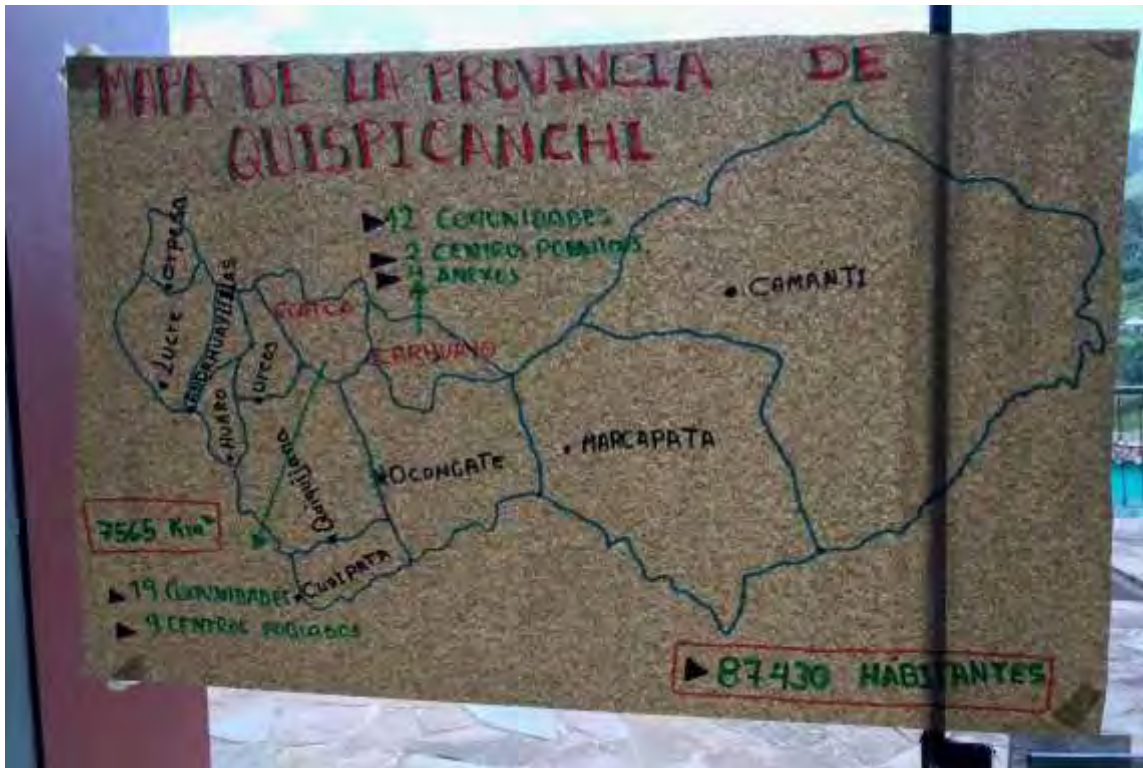 MAPA DE LA PROVINCIA DE
QUISPICANCHI
12 COMUNIDADES
2 CENTROS POBLADOS
4 ANEXOS
OROPESA
Lucre
ANDAHUAYLILLAS
HUARO
Urcos
CCATCA
CARHUAYO
CAMANTI
MARCAPATA
OCONGATE
Quiquijana
CUSIPATA
7565 Km²
19 COMUNIDADES
9 CENTROS POBLADOS
87430 HABITANTES